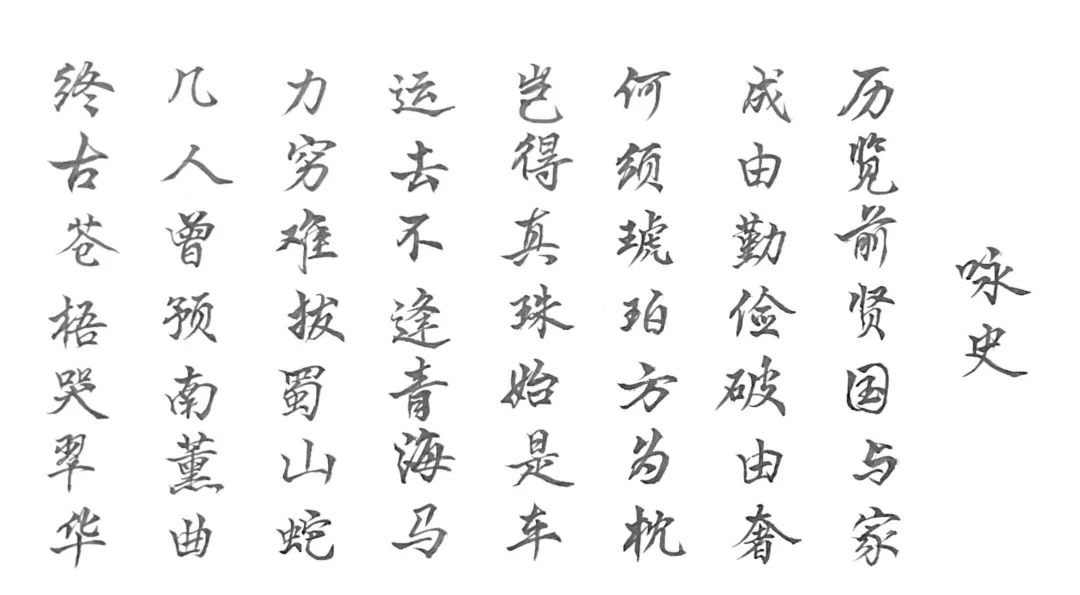 咏史
历览前贤国与家
成由勤俭破由奢
何须琥珀方为枕
岂得真珠始是车
运去不逢青海马
力穷难拔蜀山蛇
几人曾预南薰曲
终古苍梧哭翠华